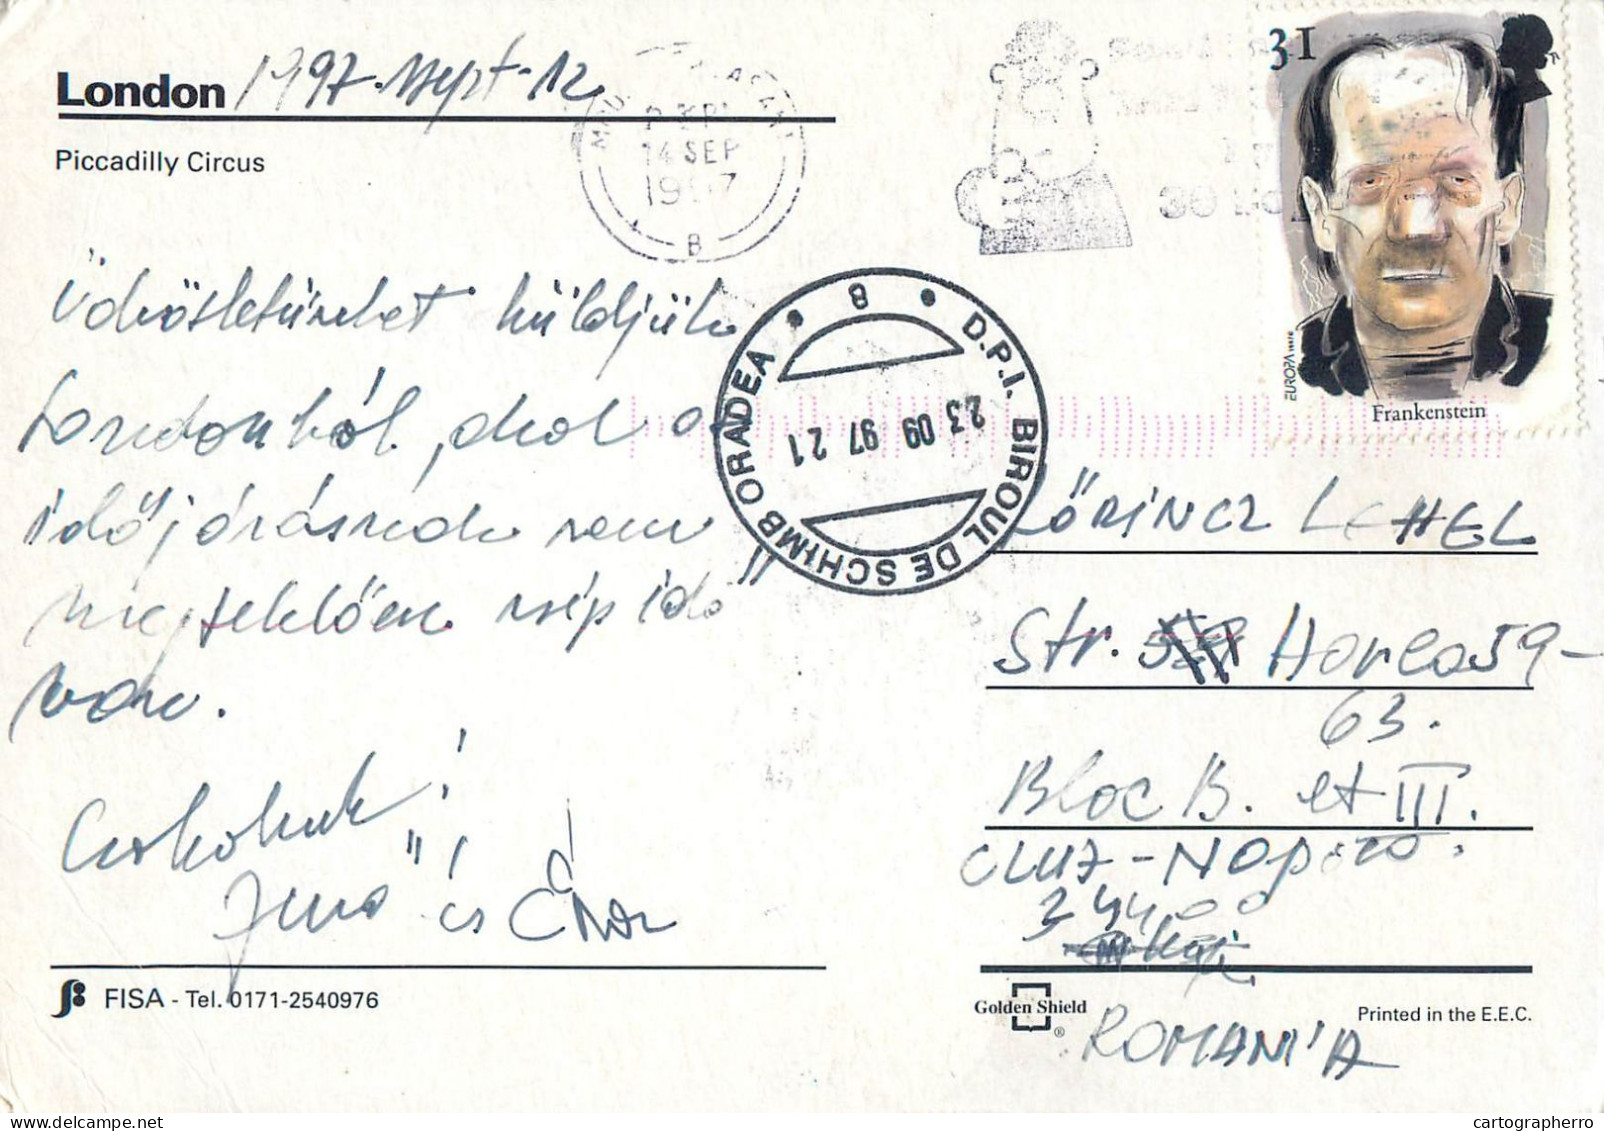 London 1997. szept. 12
Piccadilly Circus
14 SEP
1997
B
31
EUROPA
Frankenstein
D.P.I. BIROUL DE SCHIMB ORADEA
8
23 09 97 21
Üdvözletünket küldjük
Londonból, ahol az
időjárásnak nem
megfelelően szép idő
van.
Csókolunk!
Jenő és Éva
LŐRINCZ LEHEL
Str. Horea 59-
63.
Bloc B. et III.
CLUJ-Napoca.
ROMANIA
FISA - Tel. 0171-2540976
Golden Shield
®
Printed in the E.E.C.
cartographerro